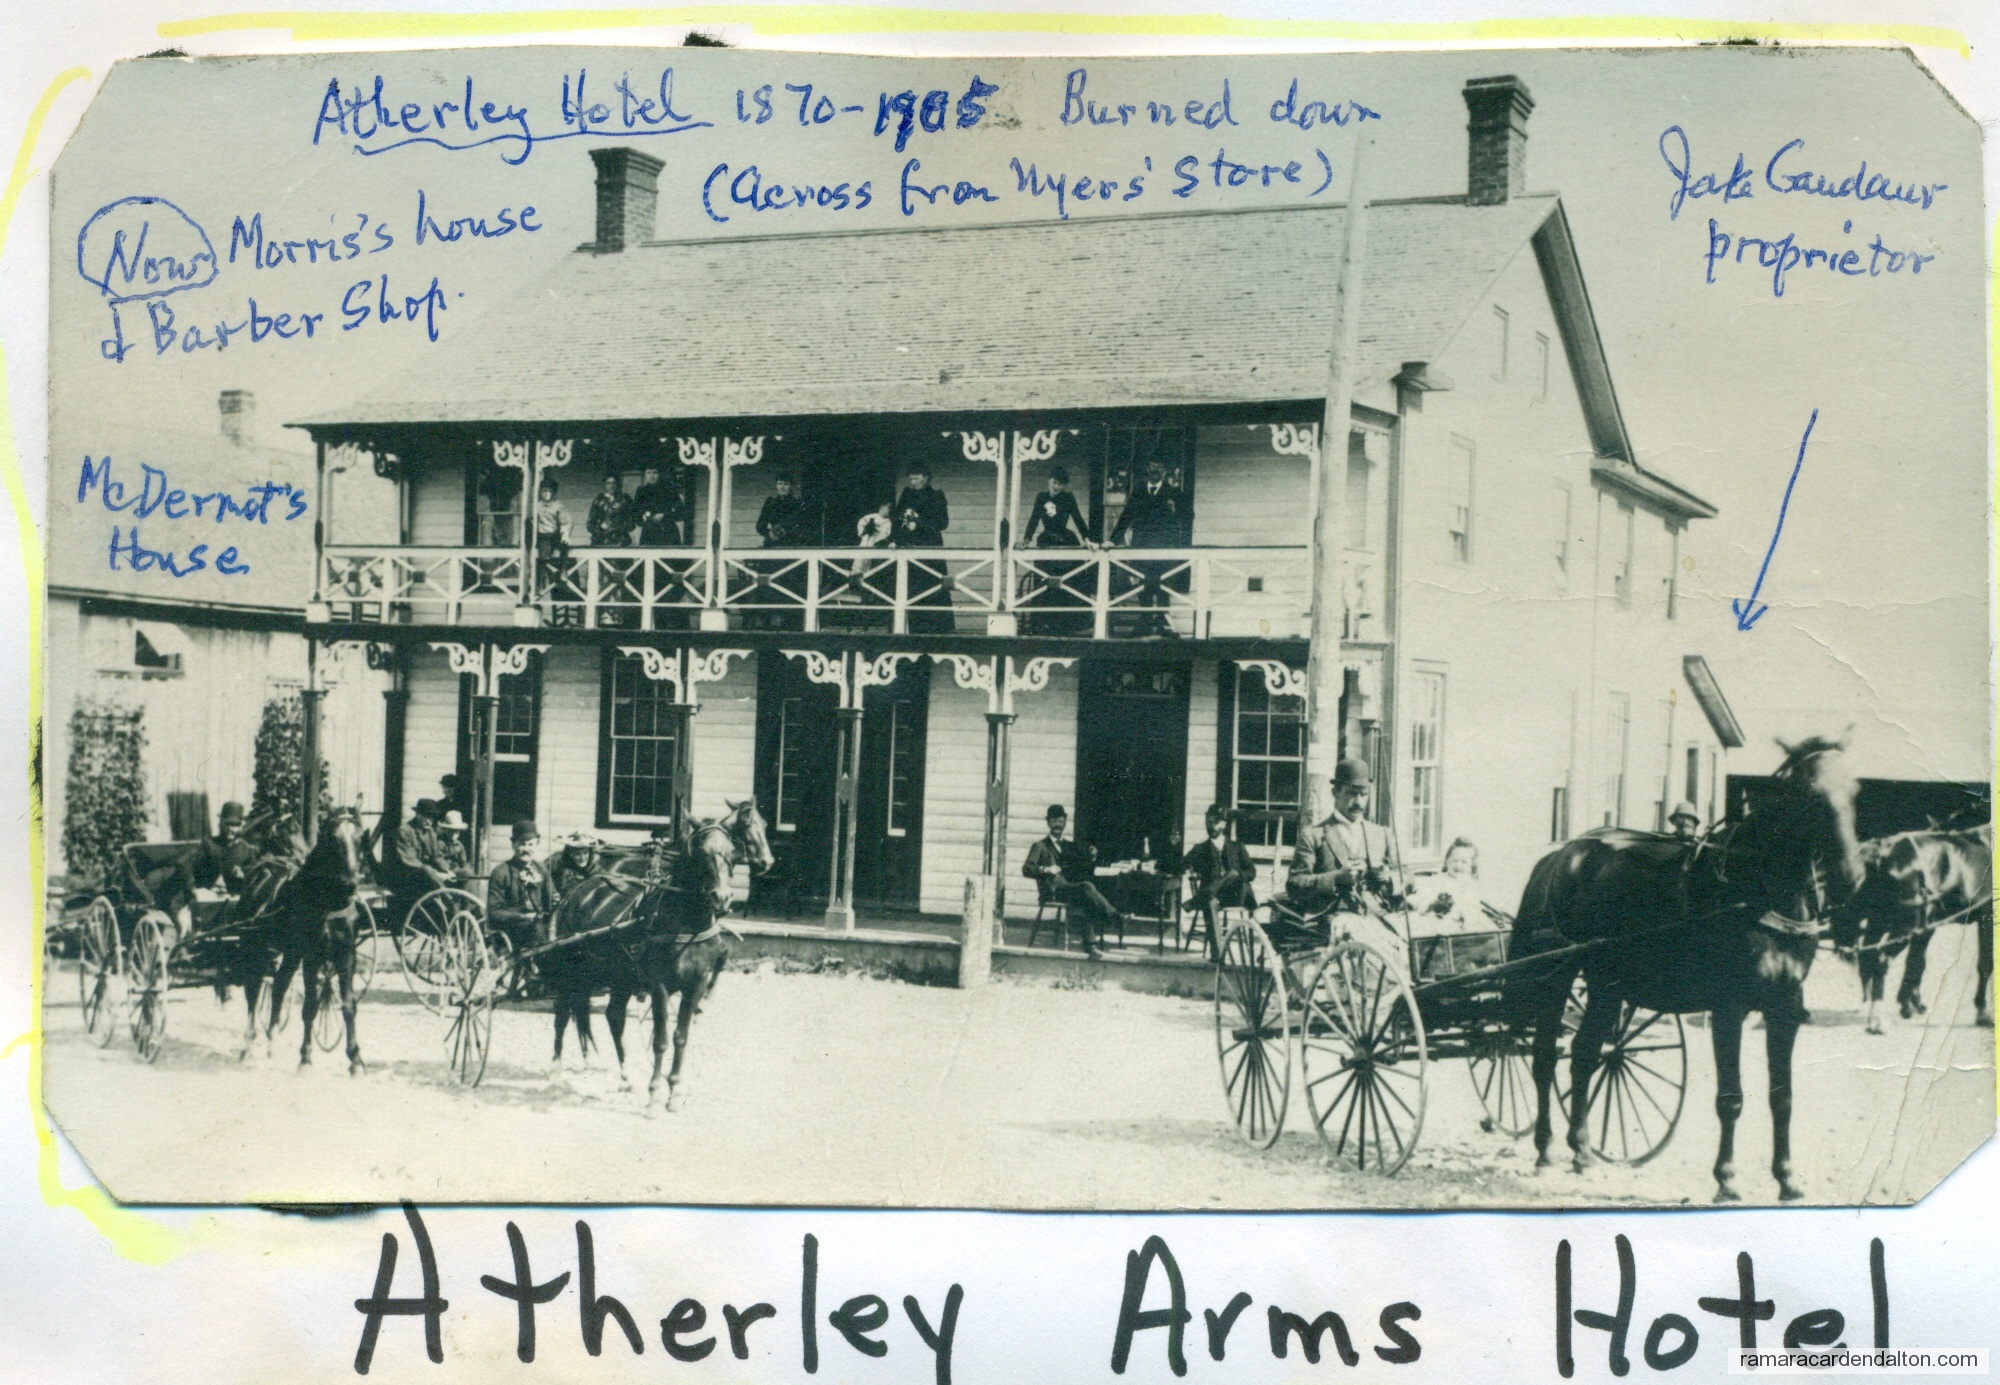 Atherley Hotel 1870-1905 Burned down
(Across from Myers' Store)
Jake Gaudaur
proprietor
Now Morris's house
& Barber Shop.
McDermot's
House
Atherley Arms Hotel
ramaracardendalton.com